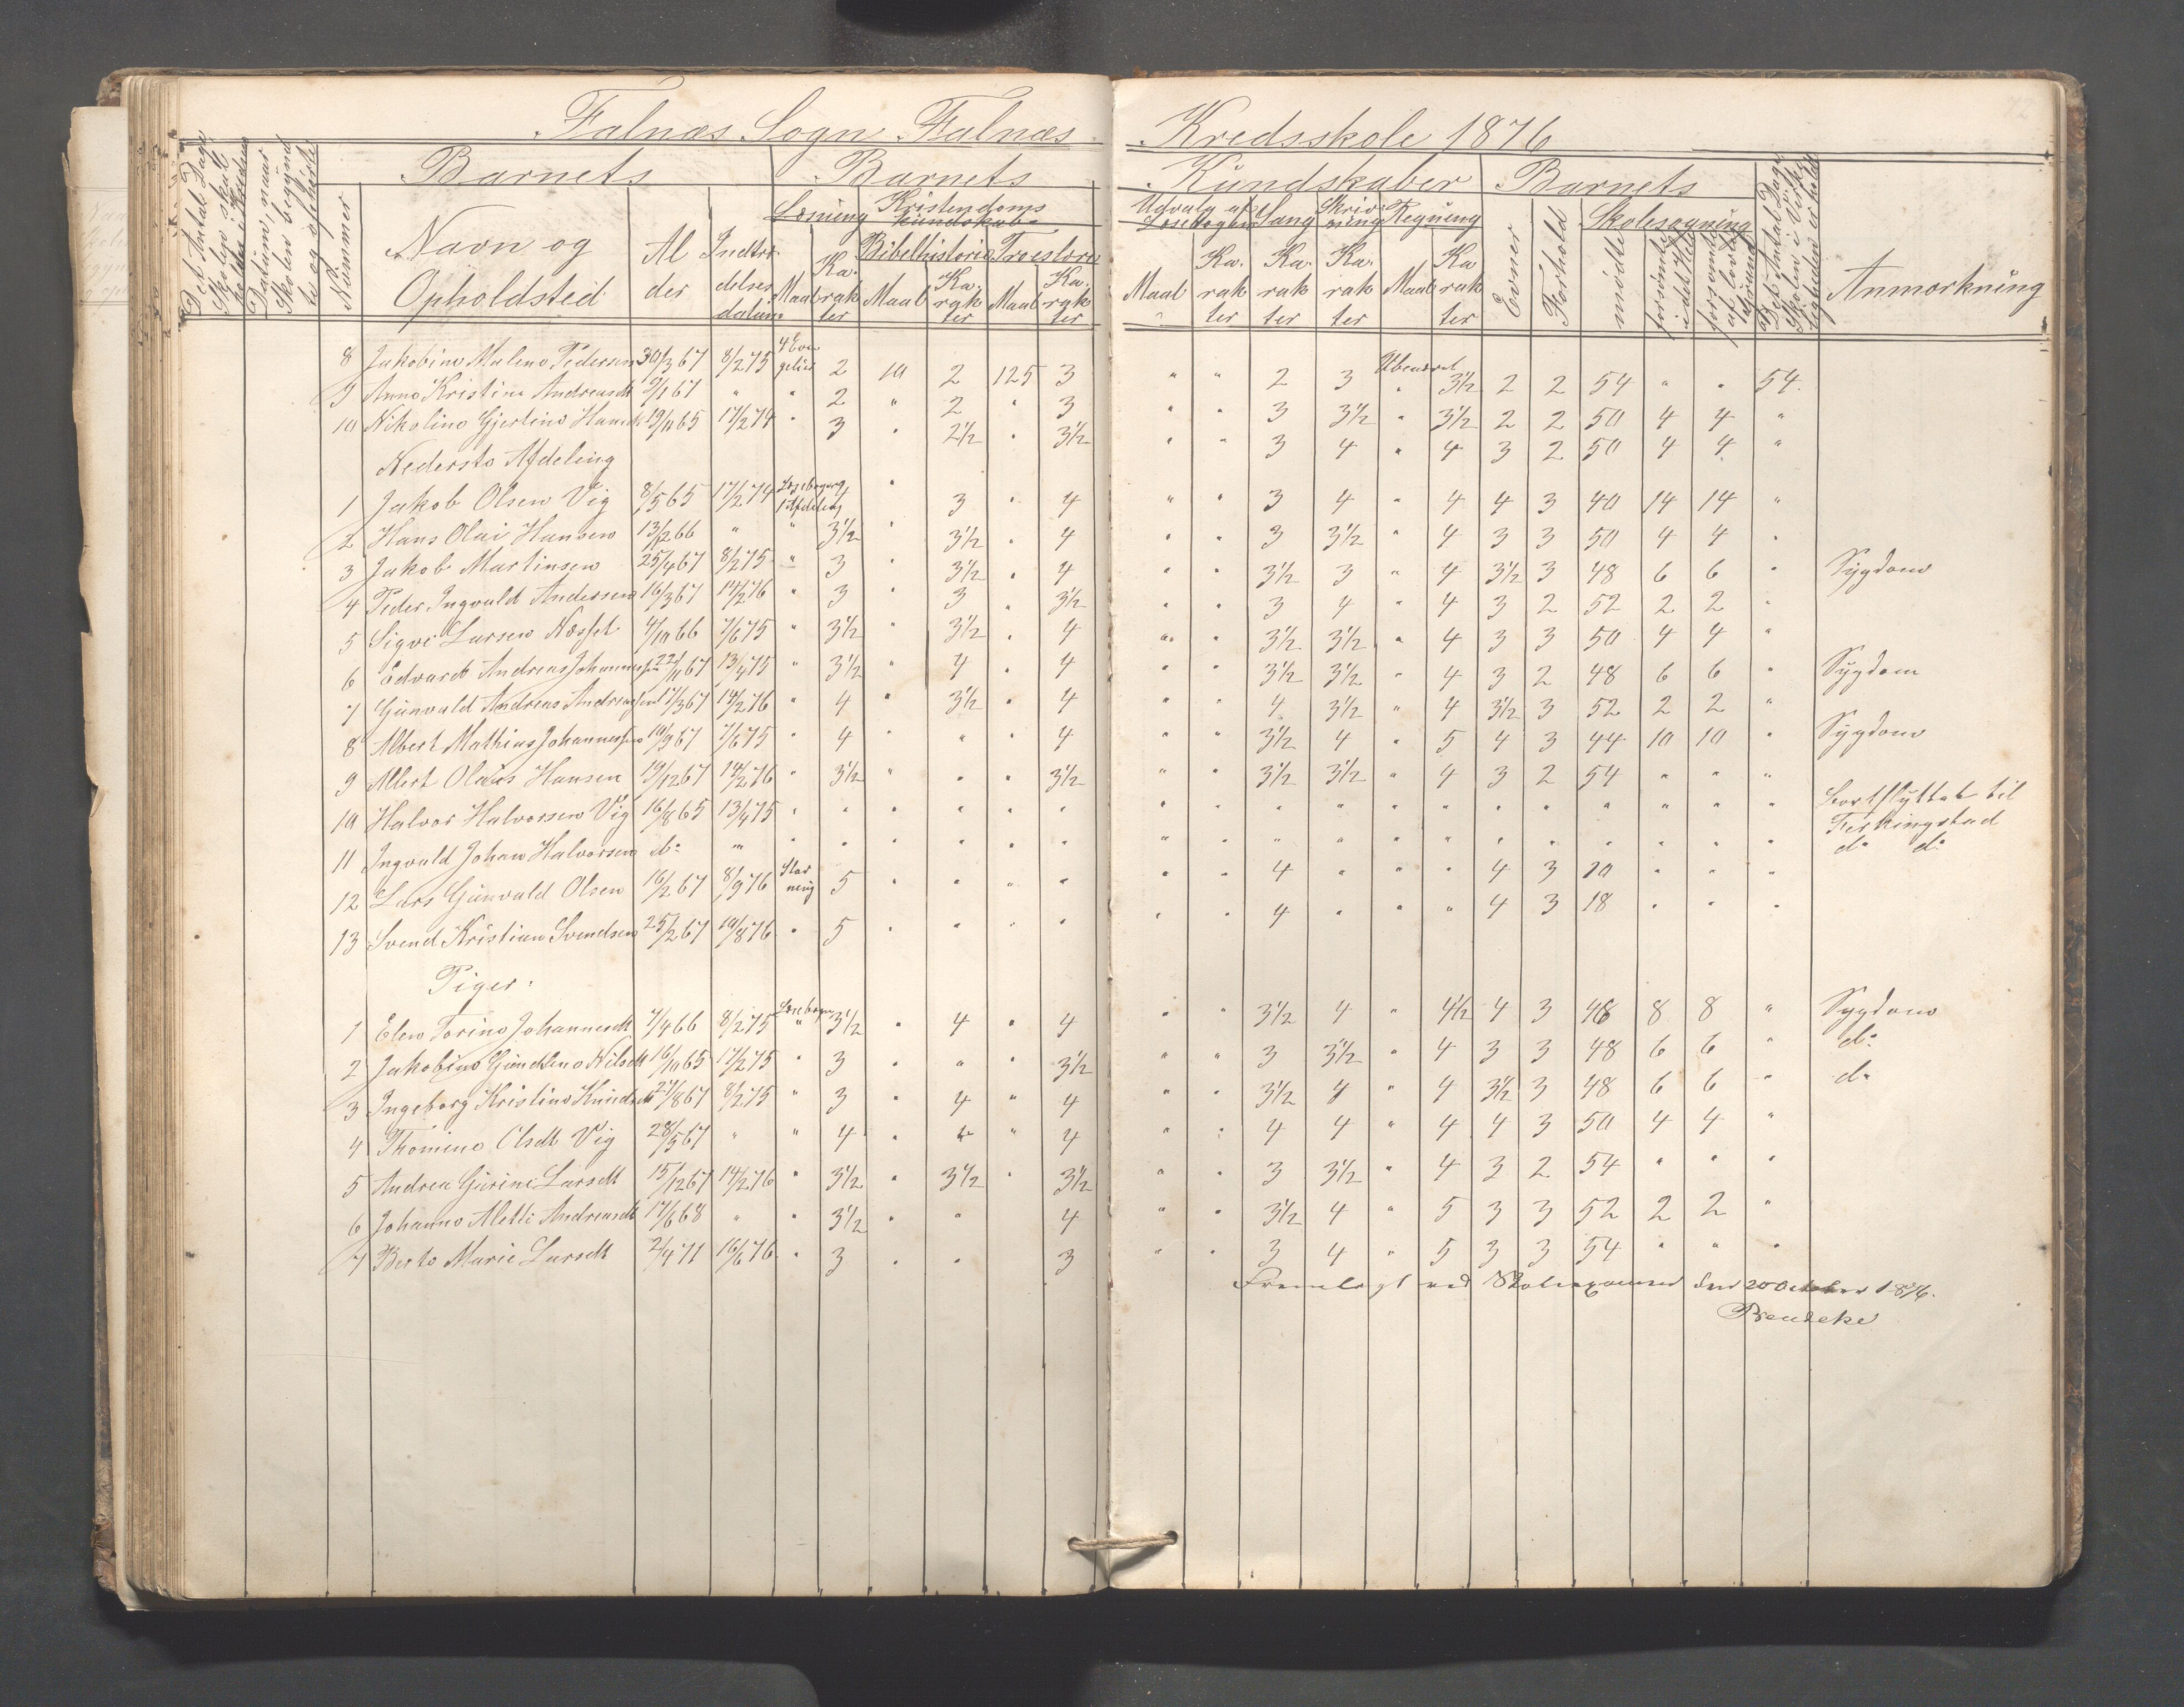 Falnæs Sogn. Falnæs Kredsskole 1876
Barnets Barnets Kundskaber Barnets
Det Antal Dage Skolen skal holdes i Kredsen
Datum, naar Skolen begyndte og afsluttede
Nummer
Navn og Opholdsted
Alder
Indtrædelses datum
Læsning Kristendoms kundskab Udvalg af Læsebogen Sang Skrivning Regning
Bibelhistorie Troeslære
Maal Karakter Maal Karakter Maal Karakter Maal Karakter Karakter Karakter Maal Karakter
Evner Forhold
Skolesøgning
mødte forsømte i det Hele forsømte af lovlig Grund
Det Antal Dage Skolen i Virkeligheden er holdt
Anmærkning
8 Jakobine Malene Pedersen 30/3 67 8/2 75 4 Evangelier 2 10 2 125 3 " " 2 3 Ubenævnt 3½ 2 2 54 " " 54
9 Anne Kristine Andreasdt 9/1 67 " " 2 " 2 " 3 " " 3 3½ " 3½ 2 2 50 4 4 "
10 Nikoline Gjertine Hansdt 19/11 65 17/2 74 " 3 " 2½ " 3½ " " 3 4 " 4 3 2 50 4 4 "
Nederste Afdeling
1 Jakob Olsen Vig 8/5 65 17/2 74 Læsebogens 1 Afdeling 4 " 3 " 4 " " 3 4 " 4 4 3 40 14 14 "
2 Hans Olai Hansen 13/12 66 " " 3½ " 3½ " 4 " " 3 3½ " 4 3 3 50 4 4 "
3 Jakob Martinsen 25/4 67 8/2 75 " 3 " 3½ " 4 " " 3½ 3 " 4 3½ 3 48 6 6 " Sygdom
4 Peder Ingvald Andersen 16/3 67 14/2 76 " 3 " 3 " 3½ " " 3 4 " 4 3 2 52 2 2 "
5 Sigve Larsen Næsset 4/10 66 7/6 75 " 3½ " 3½ " 4 " " 3½ 3½ " 4 3 3 50 4 4 "
6 Edvardt Andreas Johannesen 22/11 67 13/4 75 " 3½ " 4 " 4 " " 3½ 3½ " 4 3 2 48 6 6 " Sygdom
7 Gunvald Andreas Andreassen 17/3 67 14/2 76 " 4 " 3½ " 4 " " 4 3½ " 4 3½ 3 52 2 2 "
8 Albert Mathias Johannessen 10/9 67 7/6 75 " 4 " " " 4 " " 3½ 4 " 5 4 3 44 10 10 " Sygdom
9 Albert Olaus Hansen 19/12 67 14/2 76 " 3½ " " " 3½ " " 3½ 3½ " 4 3 2 54 " " "
10 Halvor Halvorsen Vig 16/8 65 13/4 75 " " " " " " " " " " " " " " " " " " bortflyttet til Ferkingstad
11 Ingvald Johan Halvorsen do " " " " " " " " " " " " " " " " " " " do do
12 Lars Gunvald Olsen 16/2 67 8/9 76 Stavning 5 " " " " " " 4 " " " 4 3 20 " " "
13 Svend Kristian Svendsen 25/2 67 10/8 76 " 5 " " " " " " 4 " " " 4 3 18 " " "
Piger.
1 Elen Torine Johannesdt 7/4 66 8/2 75 Læsebogen 3½ " 4 " 4 " " 3½ 4 " 4½ 4 3 46 8 8 " Sygdom
2 Jakobine Gundeline Nilsdt 16/10 65 17/2 75 " 3 " " " 3½ " " 3 3½ " 4 3 3 48 6 6 " do
3 Ingeborg Kristine Knudsdt 27/8 67 8/2 75 " 3 " 4 " 4 " " 3½ 4 " 4 3½ 3 48 6 6 " do
4 Thomine Olsdt Vig 28/5 67 " " 4 " 4 " 4 " " 4 4 " 4 4 3 50 4 4 "
5 Andrea Gurine Larsdt 15/12 67 14/2 76 " 3½ " 3½ " 3½ " " 3 3½ " 4 3 2 54 " " "
6 Johanne Aletti Andreasdt 17/6 68 " " 3½ " " 4 " " 3½ 4 " 5 3 3 52 2 2 "
7 Berte Marie Larsdt 2/4 71 16/6 76 " 3 " " 3 " " 3 4 " 5 3 3 54 " " "
Fremlagt ved Skoleexamen den 20 October 1876.